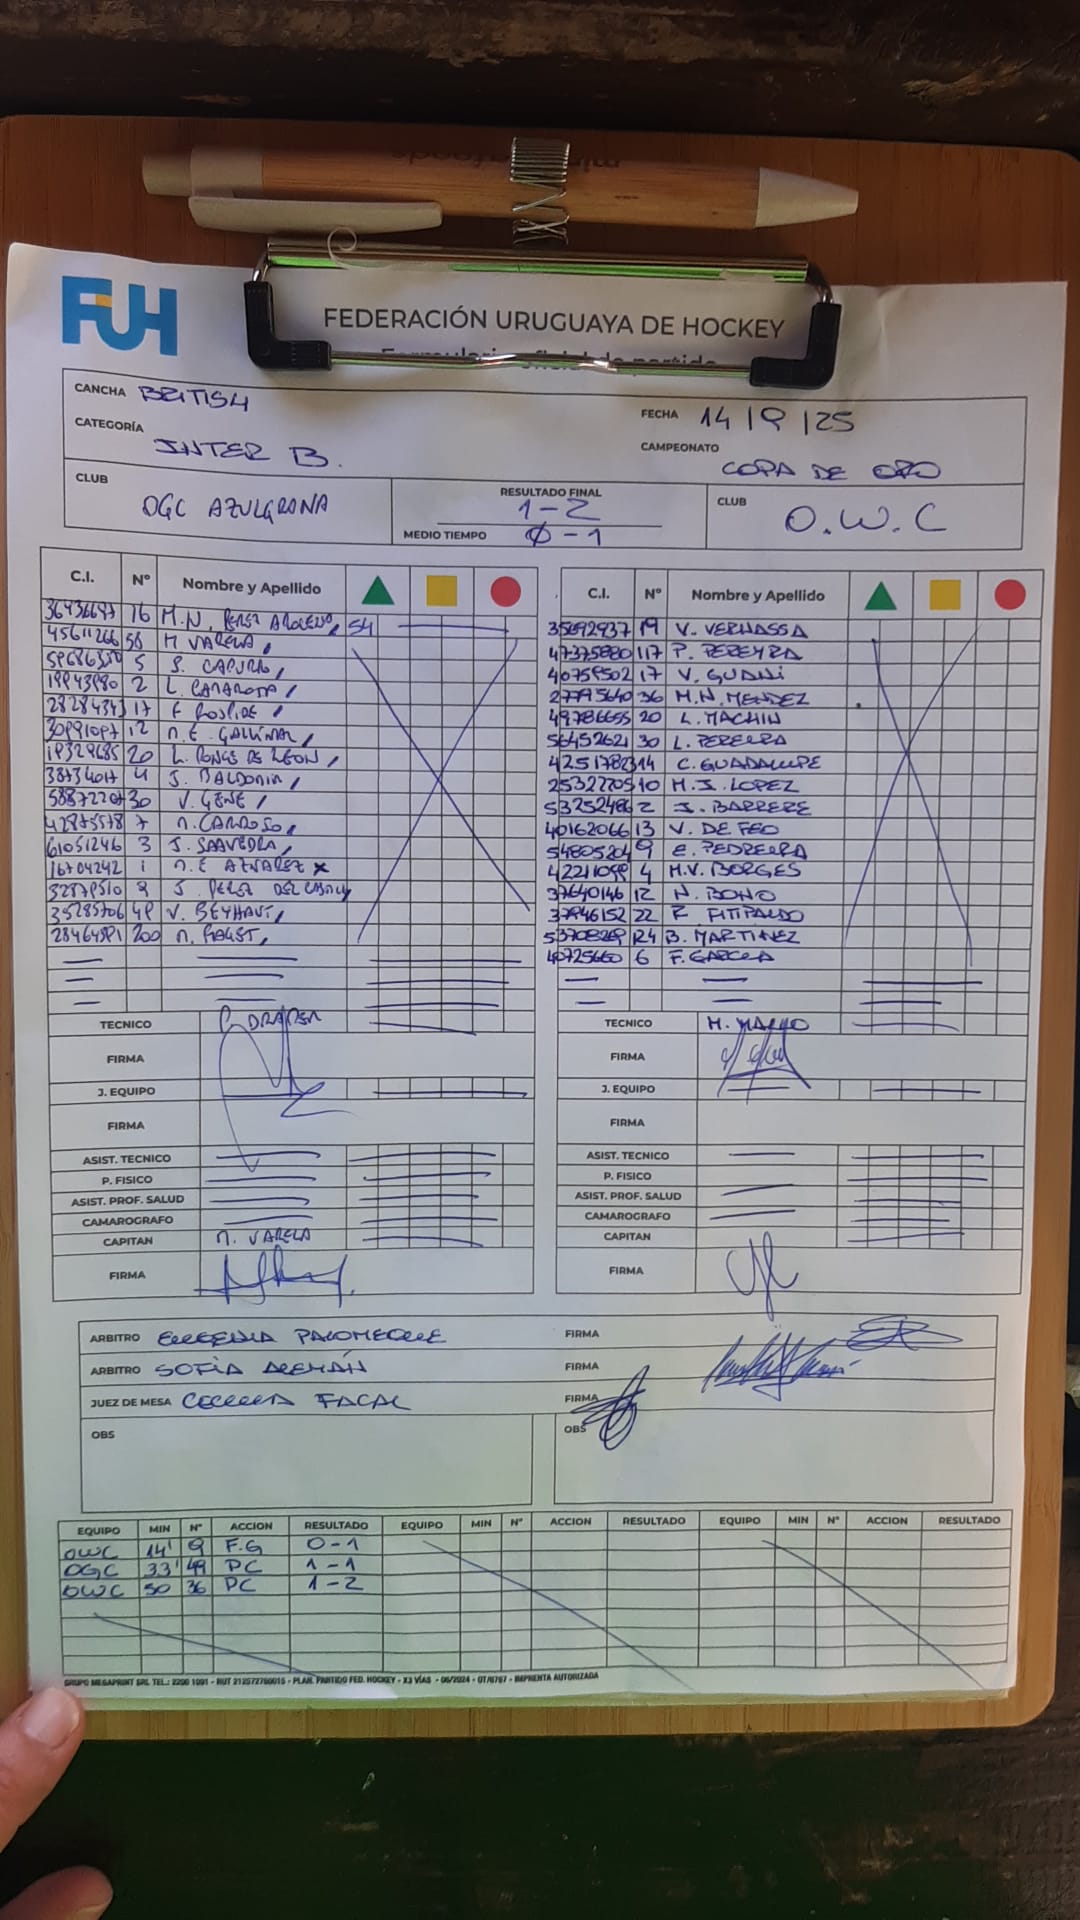 FUH
FEDERACIÓN URUGUAYA DE HOCKEY
CANCHA BRITISH
FECHA 14/9/25
CATEGORÍA INTER B.
CAMPEONATO COPA DE ORO
CLUB OGC AZULGRANA
RESULTADO FINAL 1-2
MEDIO TIEMPO Ø-1
CLUB O.W.C
C.I. Nº Nombre y Apellido
16 M.N. PEREZ 54
45611266 58 M VARELA
5 S. CAPURRO
2 L.
17 F
12 M.E. GALLINAL
20 L. PONCE DE LEON
4 J. BALDOMIR
30 V. GENE
42875578 7 M. CARDOSO
61051246 3 J. SAAVEDRA
16704242 1 M. E AZNAREZ x
J. PEREZ DEL CASTILLO
35285706 49 V. BEYHAUT
200 M.
TECNICO DRAPER
FIRMA
J. EQUIPO
FIRMA
ASIST. TECNICO
P. FISICO
ASIST. PROF. SALUD
CAMAROGRAFO
CAPITAN M. VARELA
FIRMA
C.I. Nº Nombre y Apellido
35692937 19 V. VERNASSA
47375880 117 P. PEREYRA
40759502 17 V.
27795640 36 M.N. MENDEZ
49786655 20 L. MACHIN
56452621 30 L. PEREIRA
42517823 14 C. GUADALUPE
25322705 10 M.J. LOPEZ
53252486 2 J. BARRERE
40162066 13 V. DE FEO
54805204 9 E. PEDREIRA
42211099 4 M.V. BORGES
37640146 12 N. BONO
37946152 22 F. FITIPALDO
124 B. MARTINEZ
40725660 6 F. GARCIA
TECNICO M.
FIRMA
J. EQUIPO
FIRMA
ASIST. TECNICO
P. FISICO
ASIST. PROF. SALUD
CAMAROGRAFO
CAPITAN
FIRMA
ARBITRO EUGENIA PALOMEQUE FIRMA
ARBITRO SOFÍA ALEMÁN FIRMA
JUEZ DE MESA CECILIA FACAL FIRMA
OBS OBS
EQUIPO MIN Nº ACCION RESULTADO EQUIPO MIN Nº ACCION RESULTADO EQUIPO MIN Nº ACCION RESULTADO
OWC 14' 9 F.G 0-1
OGC 33' 49 PC 1-1
OWC 50 36 PC 1-2
GRUPO MEGAPRINT SRL TEL.: 2206 1091 - RUT 212572780015 - PLAN. PARTIDO FED. HOCKEY - X3 VÍAS - 06/2024 - OT/6767 - IMPRENTA AUTORIZADA